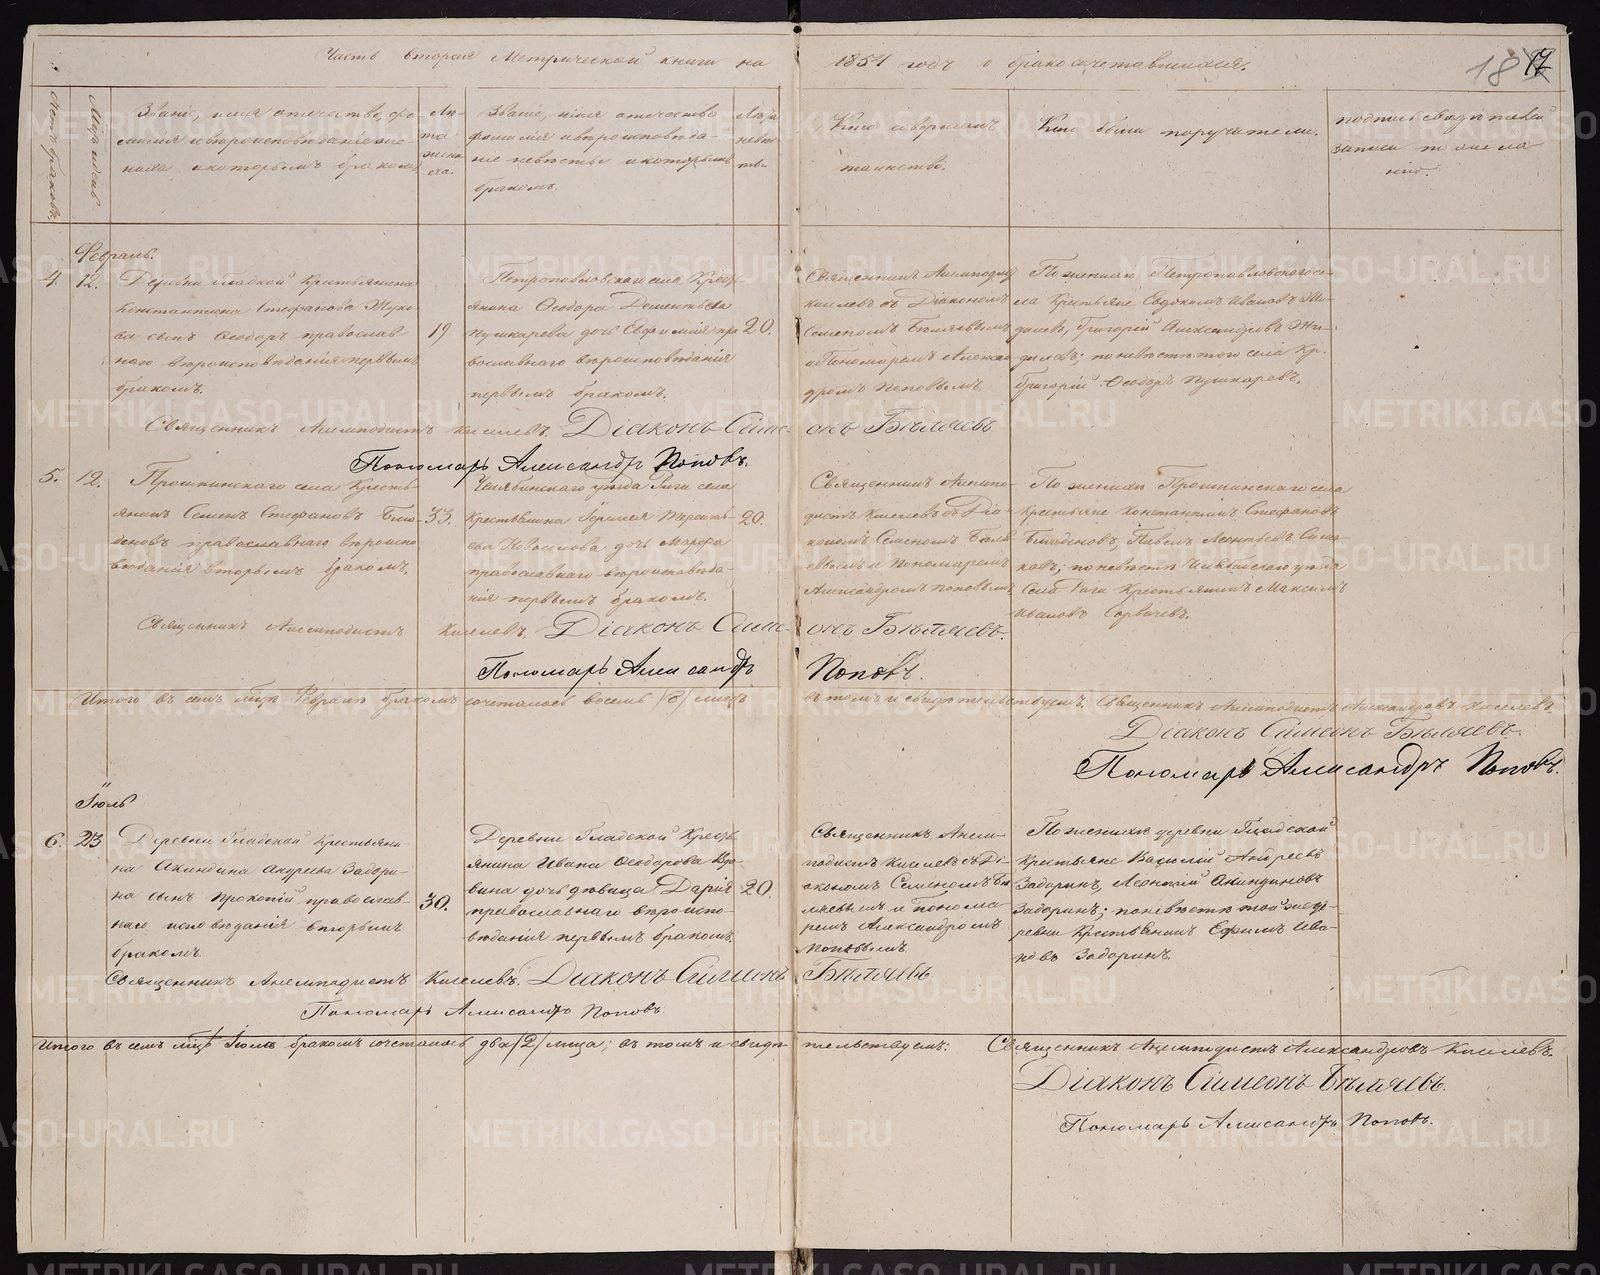 Часть вторая Метрической книги на 1851 годъ о бракосочетавшихся.
18 17
Счетъ браковъ.
Мѣсяцъ и день
Званіе, имя отечество, фа-
милія и вѣроисповѣданіе же-
ниха и которымъ бракомъ
Лѣ-
та
жени-
ха.
Званіе, имя отечество
фамилія и вѣроисповѣда-
ніе невѣсты и которымъ
бракомъ.
Лѣта
невѣс-
ты
Кто совершалъ
таинство.
Кто были поручители.
подпись свидѣтелей
записи по жела
нію.
Февраль.
4. 12.
Деревни Гладкой Крестьянина
Константина Стефанова Жуко-
ва сынъ Ѳеодоръ православ
наго вѣроисповѣданія первымъ
бракомъ.
19
Петропавловскаго села Кресть
янина Ѳеодора Дементьева
Пушкарева дочь Евфимія пра
вославнаго вѣроисповѣданія
первымъ бракомъ.
20.
Священникъ Анемподистъ
Киселевъ съ Діакономъ
Семеномъ Бѣляевымъ
и Пономаремъ Алексан
дромъ Поповымъ
По женихѣ Петропавловскаго се-
ла Крестьяне Евдокимъ Ивановъ
Григорій Александровъ
по невѣстѣ того села Кр.
Григорій Ѳеодоръ Пушкаревъ.
Священникъ Анемподистъ Киселевъ. Діаконъ Симеонъ Бѣляевъ
Пономарь Александръ Поповъ.
5. 12.
села Кресть-
янинъ Семенъ Стефановъ
православнаго вѣроиспо
вѣданія вторымъ бракомъ.
33.
Челябинскаго уѣзда села
Крестьянина
дочь Марфа
православнаго вѣроисповѣда-
нія первымъ бракомъ.
20.
Священникъ Анемпо-
дистъ Киселевъ съ Діа-
кономъ Семеномъ Бѣля
евымъ и Пономаремъ
Александромъ Поповымъ
По женихѣ села
Крестьяне Константинъ Стефановъ
Павелъ Леонтьевъ
по невѣстѣ уѣзда
Села Крестьянинъ Максимъ
Ивановъ
Священникъ Анемподистъ Киселевъ. Діаконъ Симеонъ Бѣляевъ.
Пономарь Александръ Поповъ.
Итого въ семъ мѣсяцѣ Февралѣ бракомъ сочеталось восемь /8/ лицъ въ томъ и свидѣтельствуемъ. Священникъ Анемподистъ Александровъ Киселевъ.
Діаконъ Симеонъ Бѣляевъ.
Пономарь Александръ Поповъ.
Іюль
6. 23
Деревни Гладской Крестьяни-
на Акиндина Андреева Задори-
на сынъ Прокопій православ-
наго исповѣданія вторымъ
бракомъ.
30.
Деревни Гладской Кресть
янина Ивана Ѳеодорова
дочь дѣвица Дарія
православнаго вѣроиспо-
вѣданія первымъ бракомъ.
20.
Священникъ Анем-
подистъ Киселевъ съ Ді-
акономъ Семеномъ Бѣ
ляевымъ и Понома-
ремъ Александромъ
Поповымъ
По женихѣ деревни Гладской
Крестьяне Василій Андреевъ
Задоринъ, Леонтій Акиндиновъ
Задоринъ; по невѣстѣ той же де-
ревни Крестьянинъ Ефимъ Ива-
новъ Задоринъ.
Священникъ Анемподистъ Киселевъ. Діаконъ Симеонъ Бѣляевъ
Пономарь Александръ Поповъ.
Итого въ семъ мѣсяцѣ Іюлѣ бракомъ сочеталось два /2/ лица; въ томъ и свидѣтельствуемъ: Священникъ Анемподистъ Александровъ Киселевъ.
Діаконъ Симеонъ Бѣляевъ.
Пономарь Александръ Поповъ.
METRIKI.GASO-URAL.RU